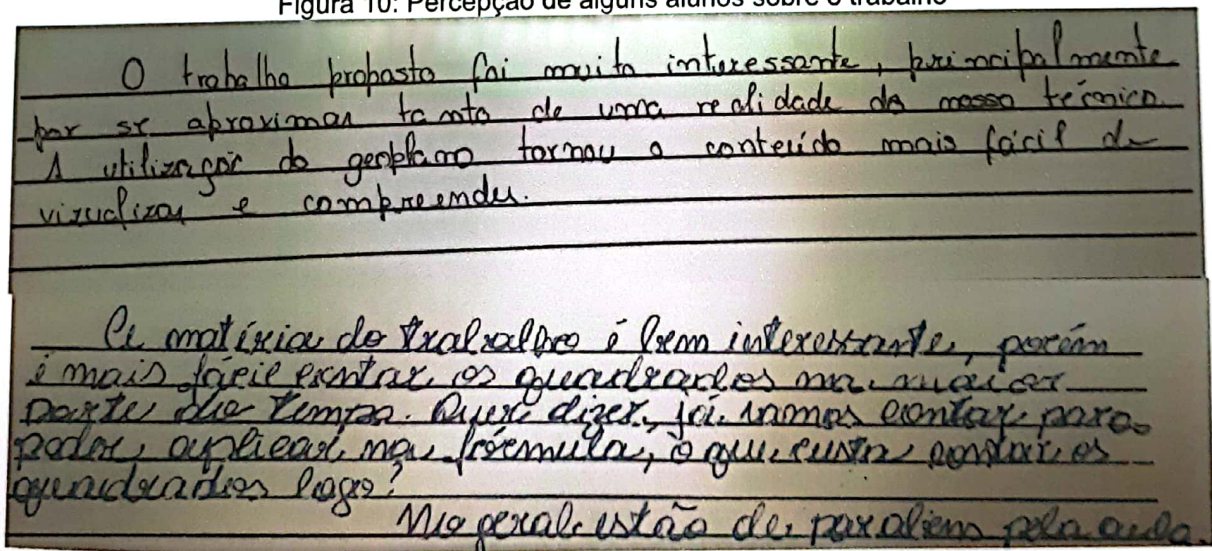 Figura 10: Percepção de alguns alunos sobre o trabalho
O trabalho proposto foi muito interessante, principalmente
por se aproximar tanto de uma realidade do nosso técnico.
A utilização do geoplano tornou o conteúdo mais fácil de
vizualizar e compreender.
A matéria do trabalho é bem interessante, porém
é mais fácil contar os quadrados na maior
parte do tempo. Quer dizer, já vamos contar para
poder aplicar na fórmula, o que custa contar os
quadrados logo?
No geral estão de parabéns pela aula.